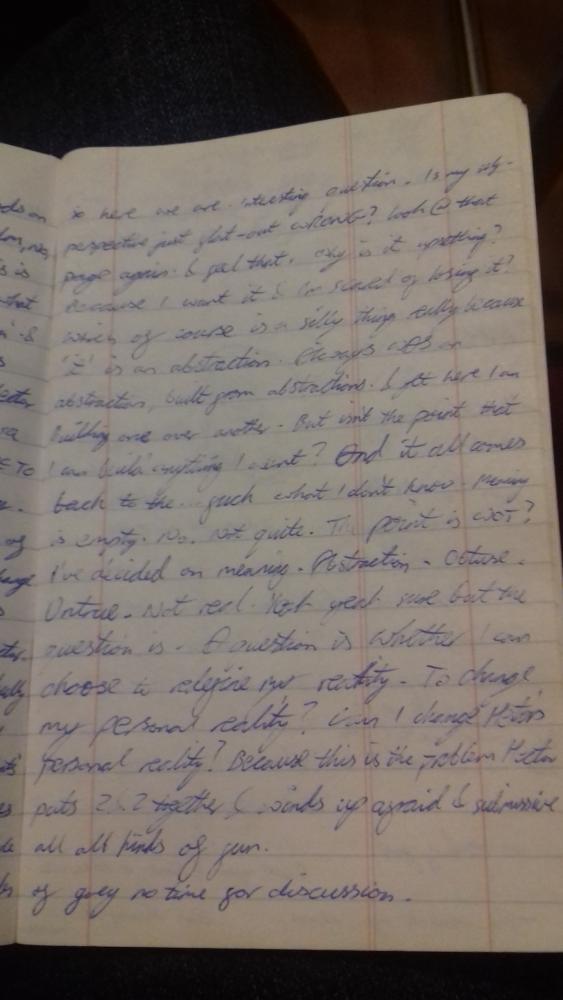 so here we are. Interesting question. Is my
perspective just flat-out WRONG? Look @ that
page again. & feel that. Why is it upsetting?
Because I want it & I'm scared of losing it?
which of course is a silly thing really because
'it' is an abstraction. Always was an
abstraction, built from abstractions. & yet here I am
building one over another. But isn't the point that
I can build anything I want? And it all comes
back to the.. fuck what I don't know. Meaning
is empty. No. Not quite. The point is WOT?
I've decided on meaning. Abstraction. Obtuse.
Untrue. Not real. Yeah yeah sure but the
question is. A question is whether I can
choose to redefine my reality. To change
my personal reality? Can I change
personal reality? Because this is the problem
puts 2&2 together & winds up afraid & submissive
all all kinds of fun.
of grey no time for discussion.